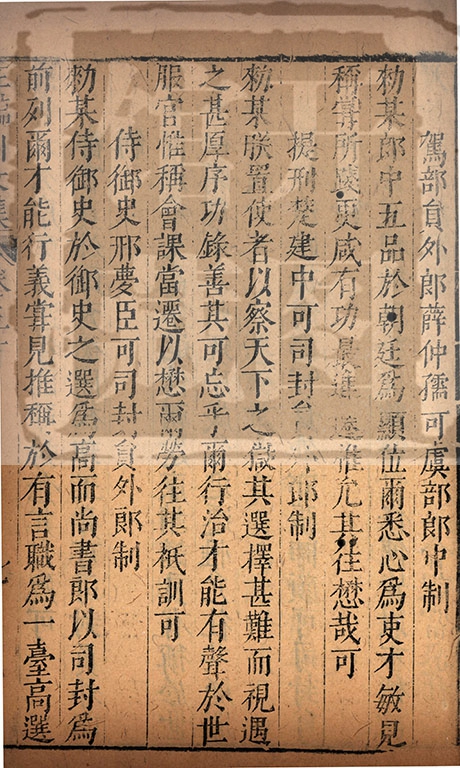 駕部員外郎薛仲孺可虞部郎中制
勑某郎中五品於朝廷爲顯位爾悉心爲吏才敏見
稱寄所更咸有功最進惟允其往懋哉可
提刑楚建中可司封員外郎制
勑某朕置使者以察天下之獄其選擇甚難而視遇
之甚厚序功錄善其可忘乎爾行治才能有聲於世
服官惟稱會課當遷以懋爾勞往其祇訓可
侍御史邢夔臣可司封員外郎制
勑某侍御史於御史之選爲高而尚書郎以司封爲
前列爾才能行義嘗見推稱於有言職爲一臺高選